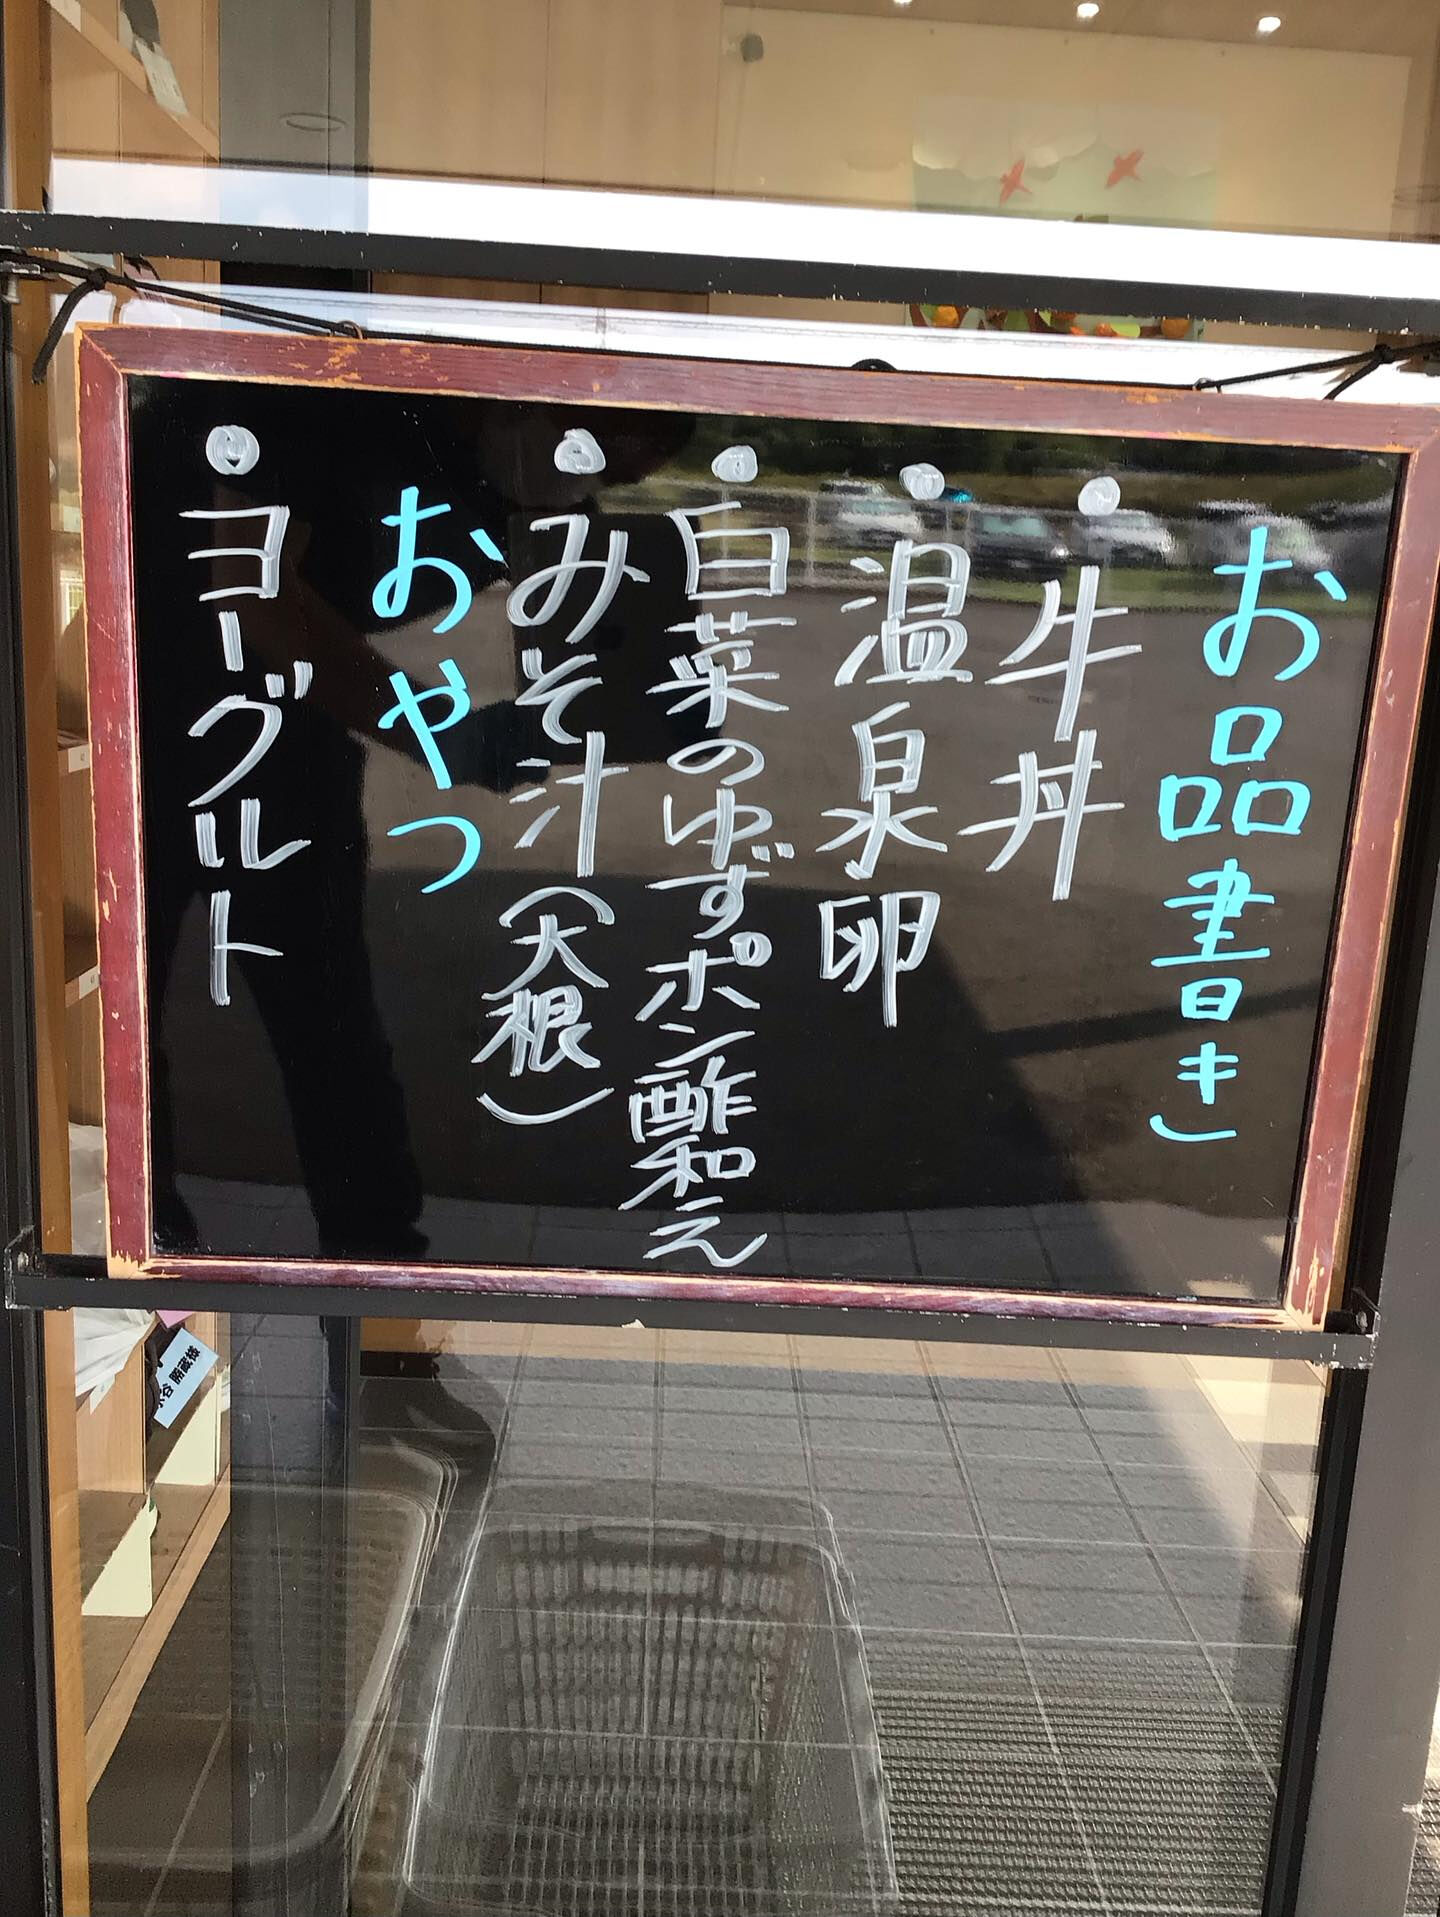 お品書き
・牛丼
・温泉卵
・白菜のゆずポン酢和え
・みそ汁(大根)
おやつ
・ヨーグルト